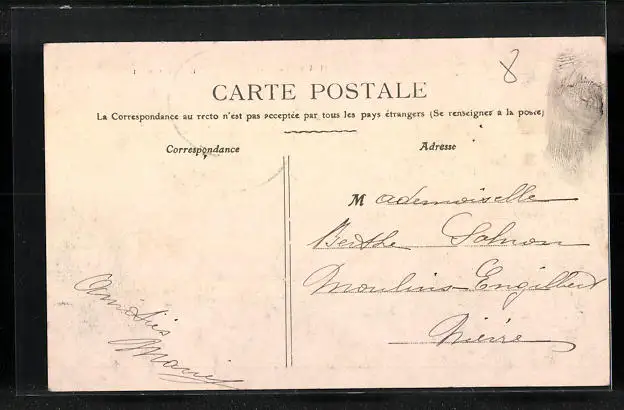 8
CARTE POSTALE
La Correspondance au recto n'est pas acceptée par tous les pays étrangers (Se renseigner à la poste)
Correspondance
Adresse
Mademoiselle
Berthe
Moulins-Engilbert
Nièvre
Amitiés
Marie